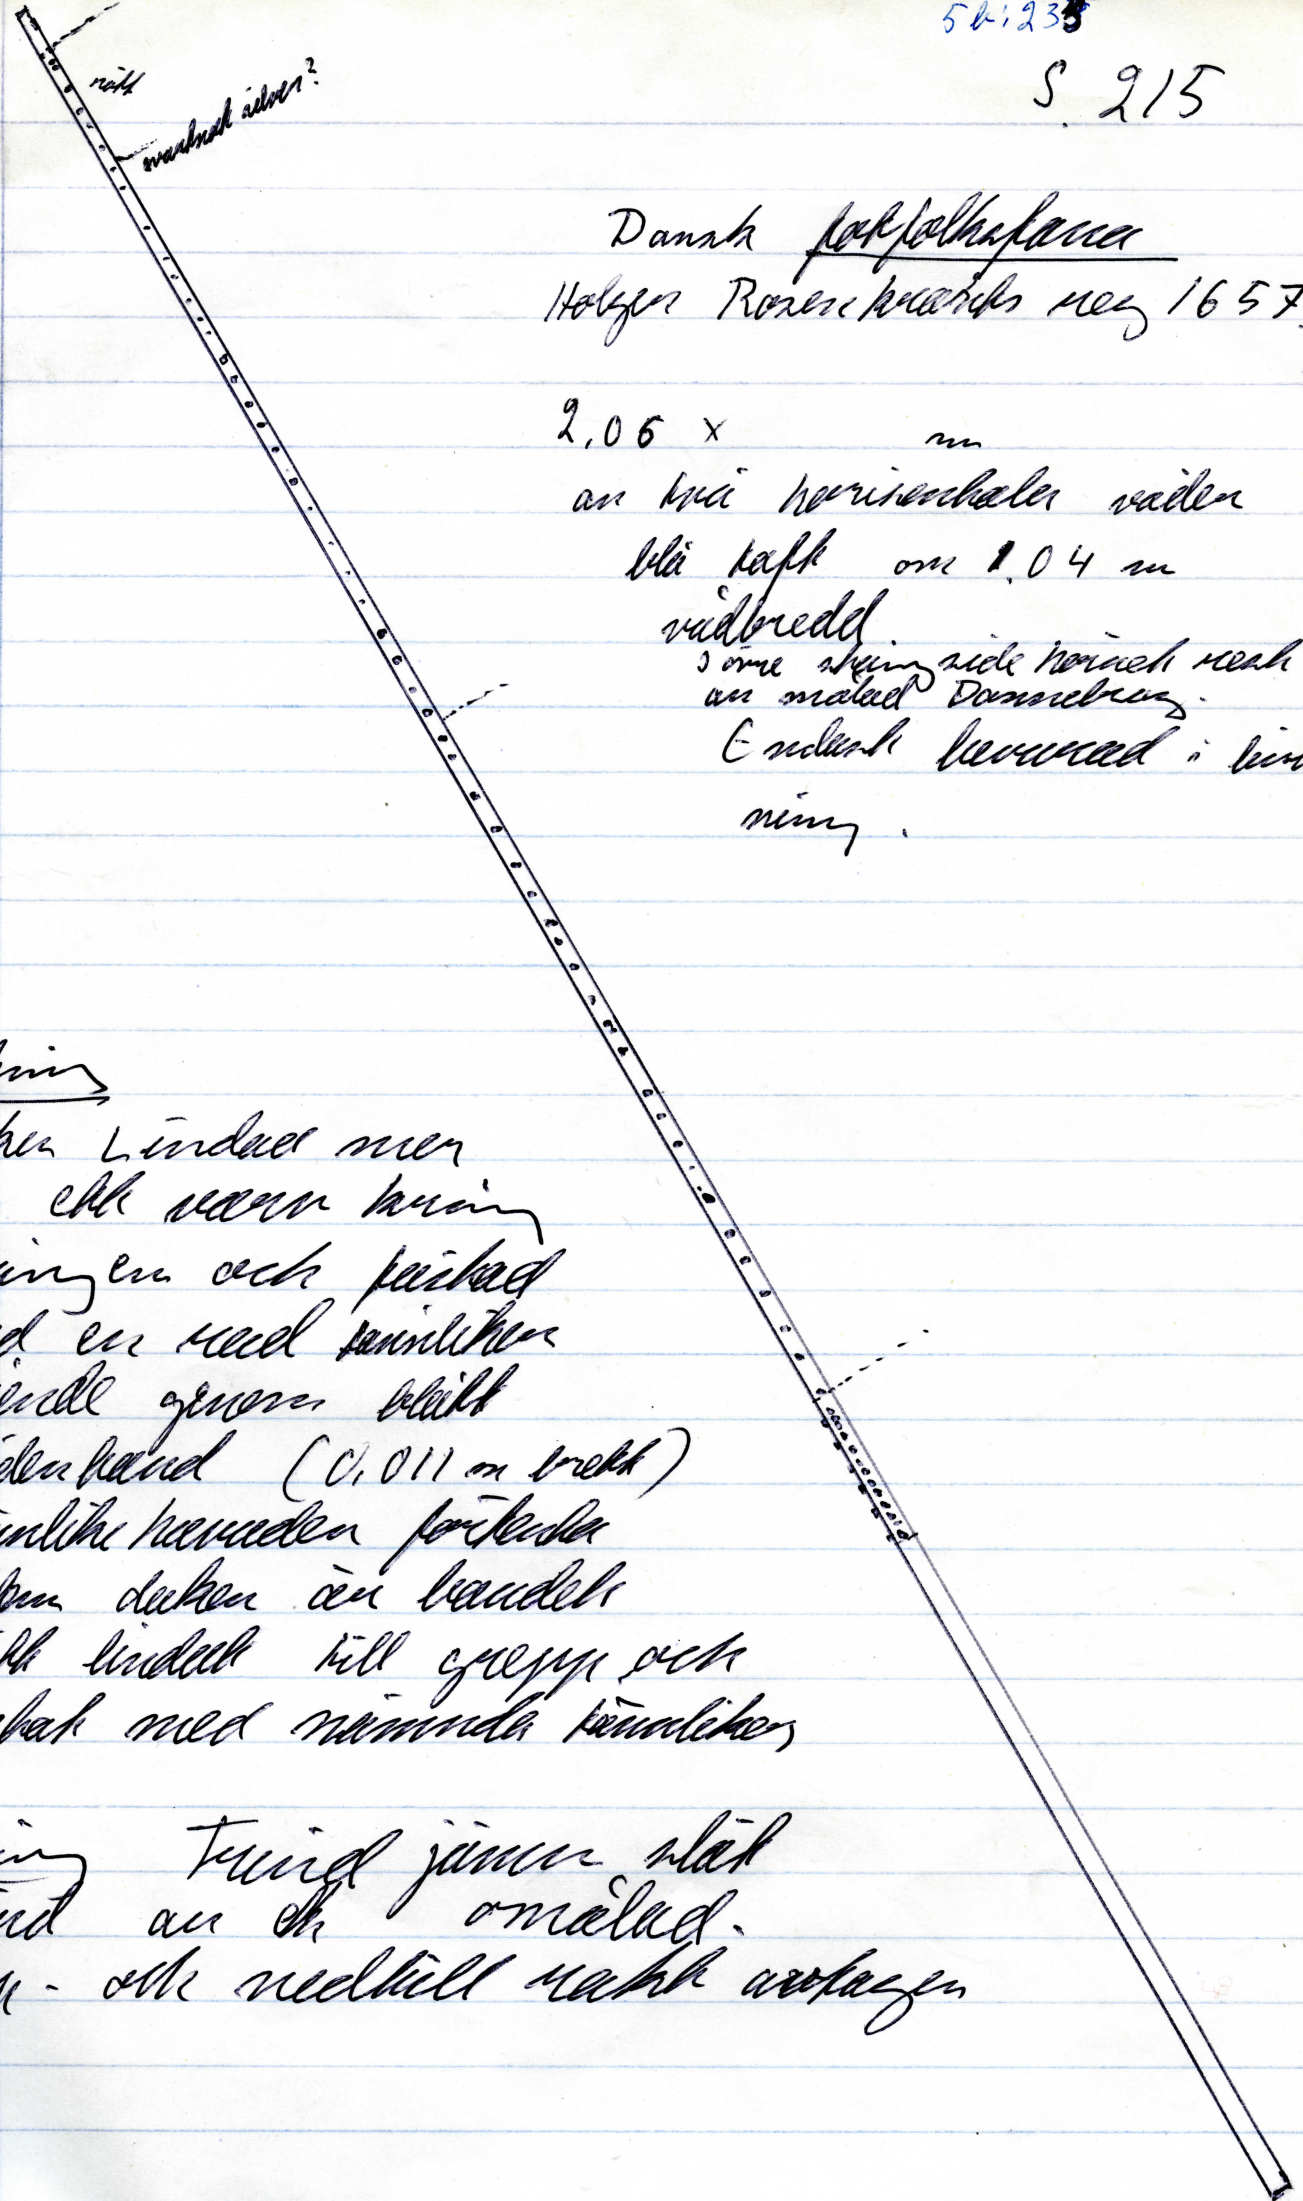 5b:233
S. 215
rött
svartnat silver?
Dansk fotfolksfana
Holger Rosenkrantz reg 1657.
2,06 x m
av två horisontala våder
blå taft om 1,04 m
vådbredd.
I övre stång side hörnet rest
av målad Dannebrog.
Endast bevarad i lin
ning.
ning
ken Lindad mer
ett varv kring
ingen och fästad
d en rad tännlikor
ende genom blått
denband (0,011 m brett)
nlike huvuden förtenta
om duken är bandet
tt lindat till grepp och
tat med nämnda tännlikor
ing Trind jämn slät
nd av ek omålad.
- och nedtill rakt avtagen